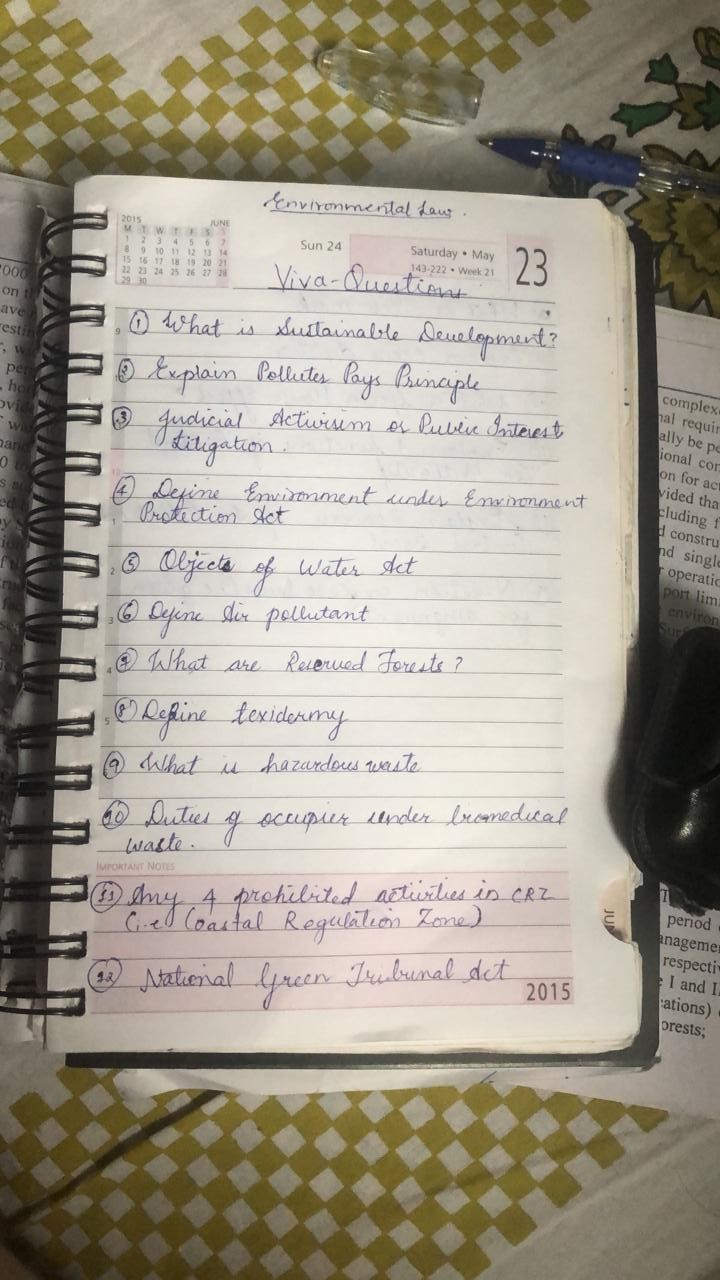 Environmental Law.
2015 JUNE
M T W T F S S
1 2 3 4 5 6 7
8 9 10 11 12 13 14
15 16 17 18 19 20 21
22 23 24 25 26 27 28
29 30
Sun 24
Saturday • May
143-222 • Week 21
23
Viva-Questions
9 ① What is Sustainable Development?
② Explain Polluter Pays Principle
③ Judicial Activisim or Public Interest
Litigation.
④ Define Environment under Environment
1 Protection Act
2 ⑤ Objects of Water Act
3 ⑥ Define Air pollutant
4 ⑦ What are Reserved Forests?
5 ⑧ Define texidermy
⑨ What is hazardous waste
⑩ Duties of occupier under biomedical
waste.
IMPORTANT NOTES
⑪ Any 4 prohibited activities in CRZ
(i.e Coastal Regulation Zone)
⑫ National Green Tribunal Act
2015
complex
ally be p
ional con
on for ac
vided tha
cluding f
d constru
nd single
r operatio
port lim
environ
period
anagemen
respectiv
I and I
cations)
orests;